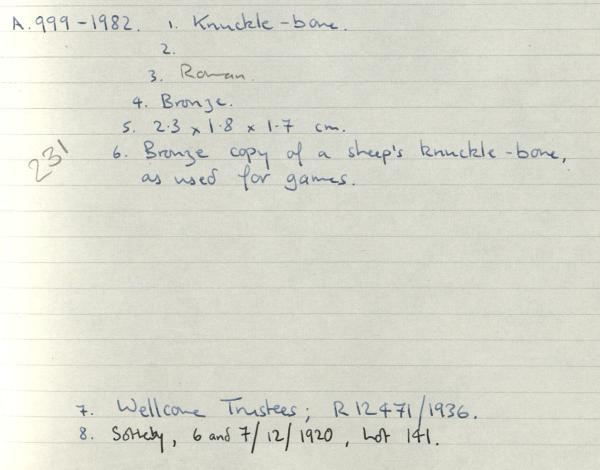 A. 999-1982. 1. Knuckle-bone.
2.
3. Roman.
4. Bronze.
5. 2.3 x 1.8 x 1.7 cm.
231
6. Bronze copy of a sheep's knuckle-bone,
as used for games.
7. Wellcome Trustees; R 12471/1936.
8. Sotheby, 6 and 7/12/1920, Lot 141.